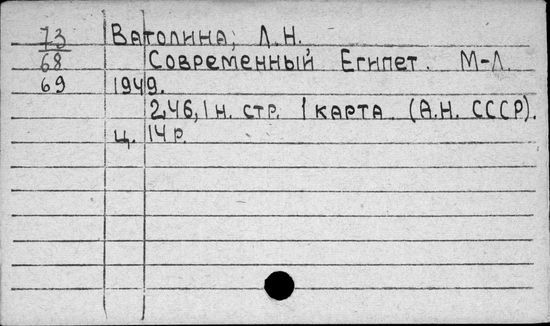 73 Ватолина, Л.Н.
68 Современный Египет. М-Л.
69 1949.
246, 1 н. стр. 1 карта (А.Н. СССР).
ц. 14 р.